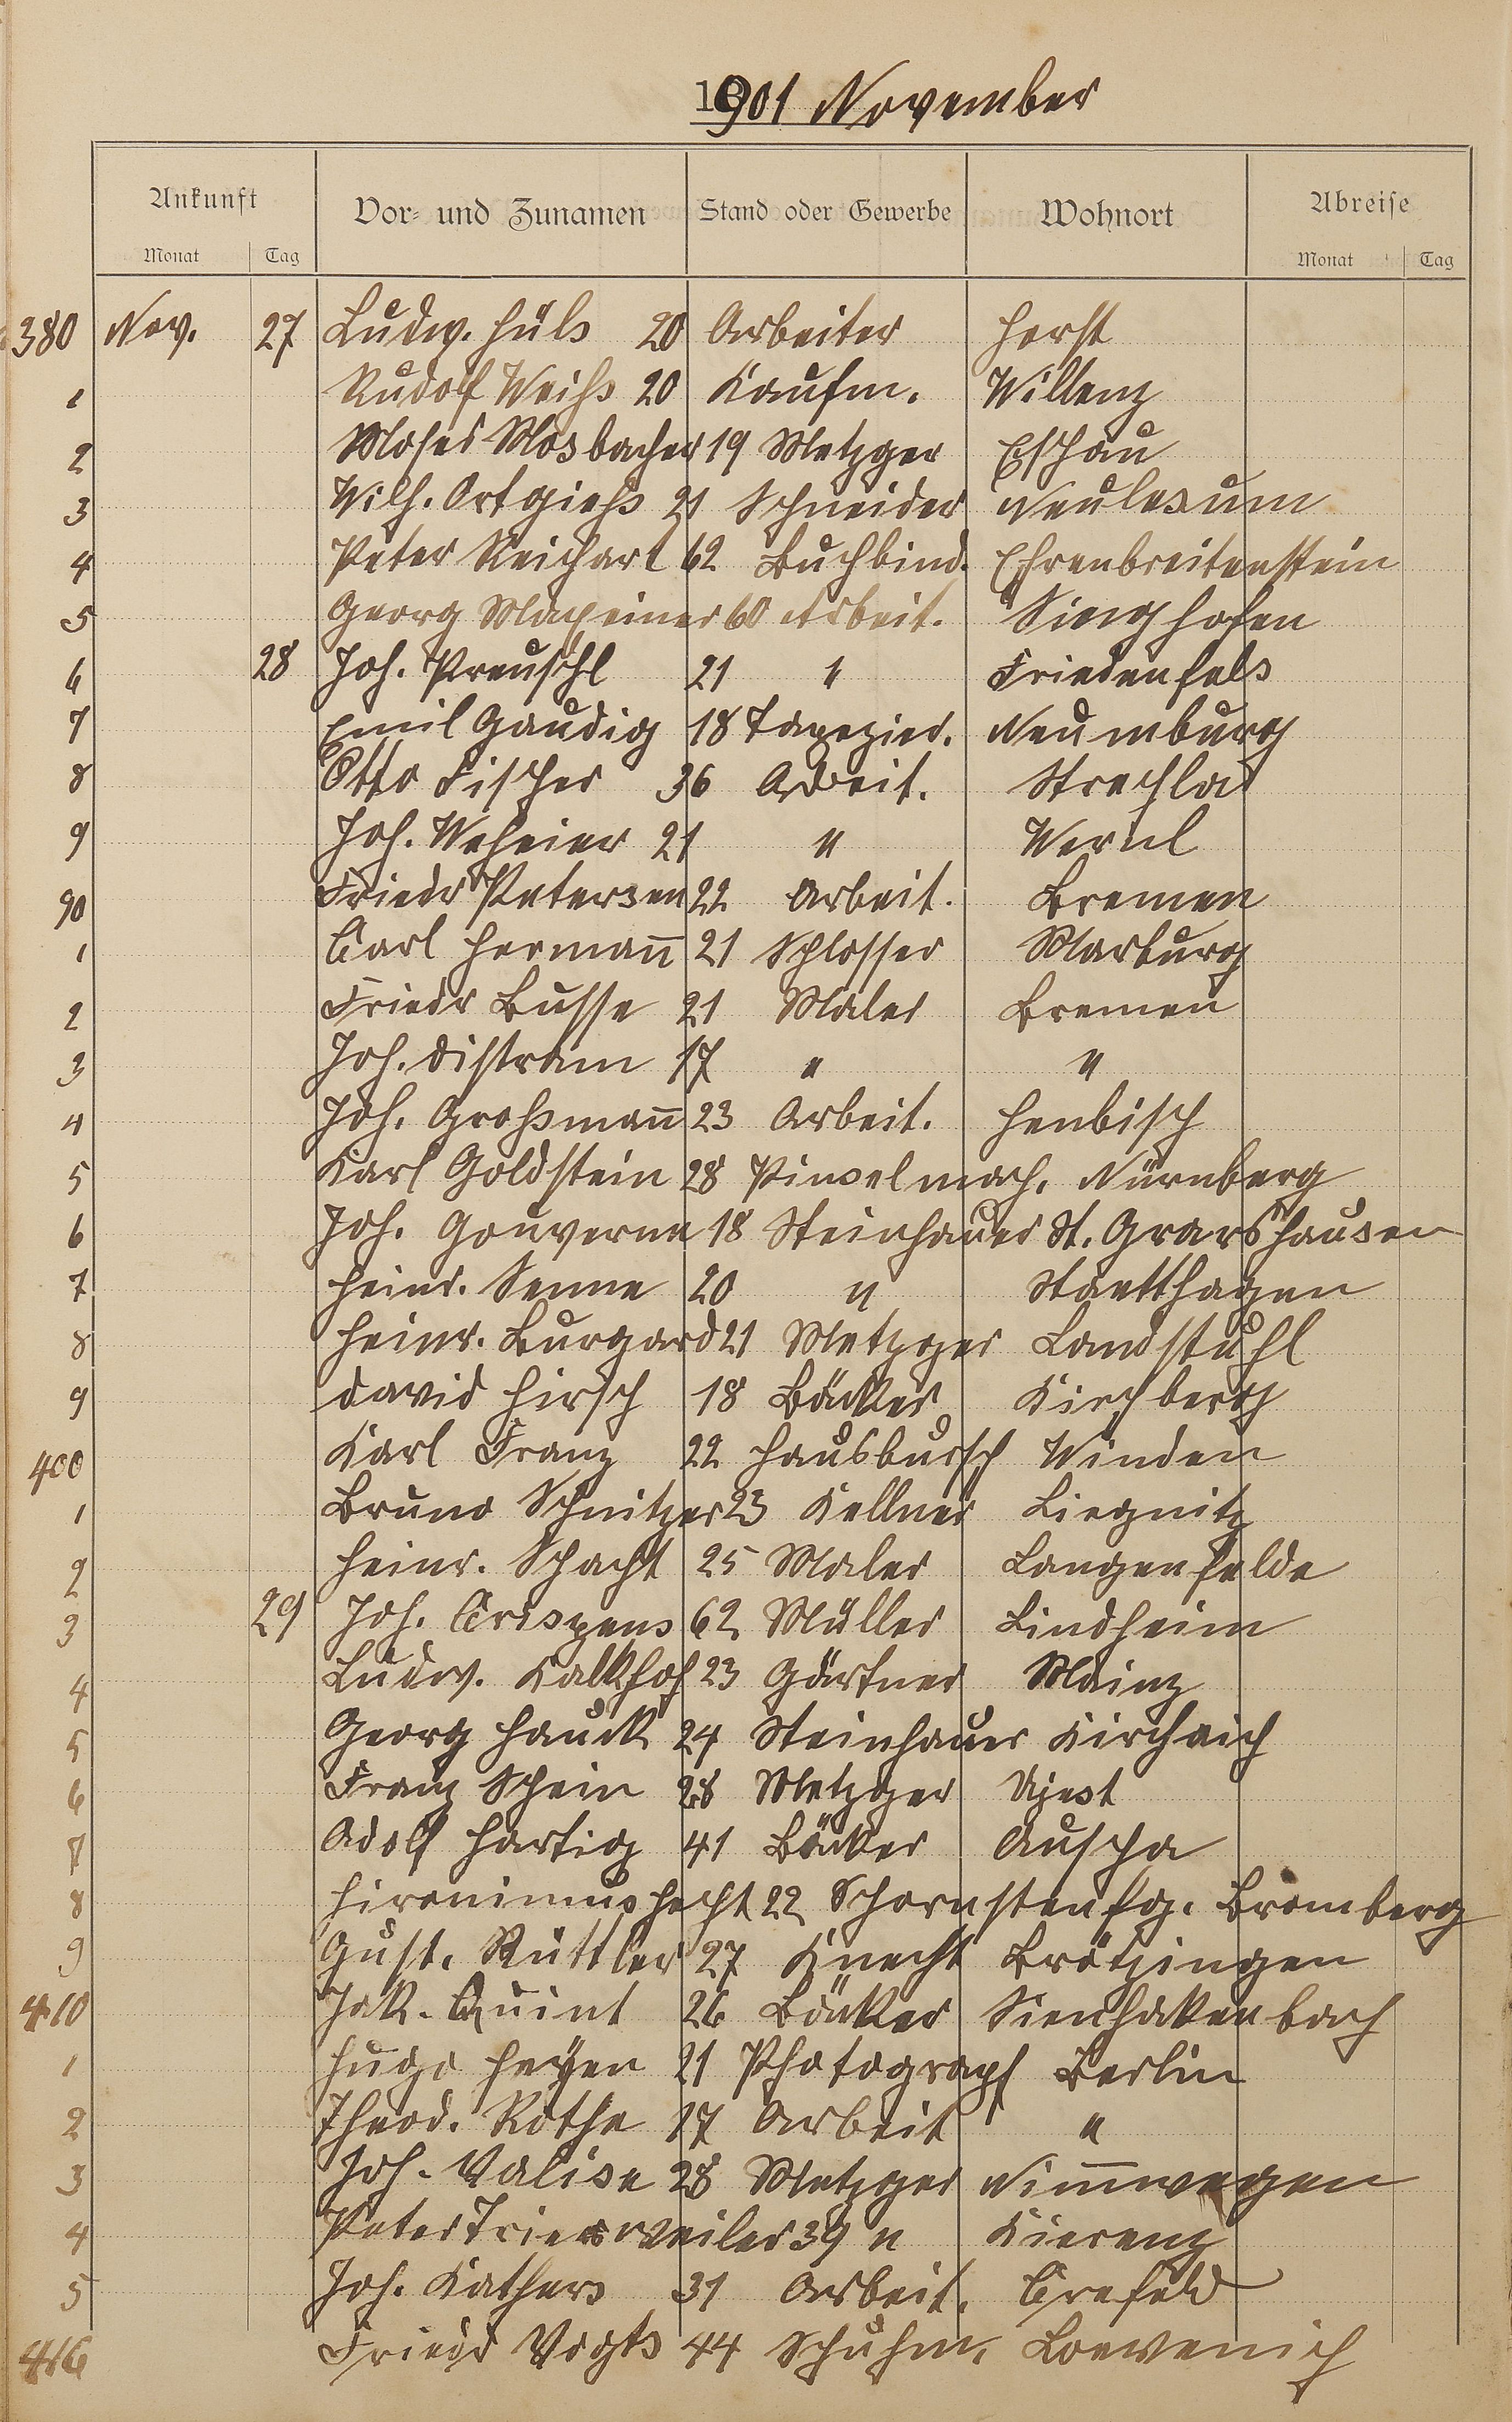 1901 November
Ankunft Vor- und Zunamen Stand oder Gewerbe Wohnort Abreise
Monat Tag Monat Tag
380 Nov. 27 Ludw. Hüls 20 Arbeiter Horst
1 Rudolf Weihs 20 Kaufm. Willenz
2 Moses Mosbacher 19 Metzger Eschau
3 Wilh. Ortgiehs 21 Schneider Neulesum
4 Peter Reichart 62 Buchbind. Ehrenbreitenstein
5 Georg 60 Arbeit. Singhofen
6 28 Joh. Preuschl 21 " Friedenfels
7 Emil Gaudig 18 Tapezier. Neumburg
8 Otto Fischer 36 Arbeit. Strehla
9 Joh. Weheier 21 "
90 Friedr Petersen 22 Arbeit. Bremen
1 Carl Hermann̄ 21 Schlosser Marburg
2 Friedr Busse 21 Maler Bremen
3 Joh. Distram 17 " "
4 Joh. Grohsman̄ 23 Arbeit. Henbisch
5 Karl Goldstein 28 Pinselmach. Nürnberg
6 Joh. Gouverne 18 Steinhauer St. Grarshausen
7 Heinr. Senne 20 " Staetthagen
8 Heinr. Burgard 21 Metzger Landstuhl
9 David Hirsch 18 Bäcker Kirchberg
400 Karl Franz 22 Hausbursch Winden
1 Bruno Schnitzer 23 Kellner Liegnitz
2 Heinr. Schacht 25 Maler Langenfelde
3 29 Joh. Crispens 62 Müller Lindheim
4 Ludw. Kalkhof 23 Gärtner Mainz
5 Georg Hauck 24 Steinhauer Kirchaich
6 Franz Schein 28 Metzger Ujest
7 Adolf Hartig 41 Bäcker Auscha
8 Hironimus Hecht 22 Schornstenfg. Bromberg
9 Gust. Rüttler 27 Knecht Brötzingen
410 Jak. Quint 26 Bäcker Sienhakenbach
1 Hugo Heyen 21 Photograph Berlin
2 Theod. Rothe 17 Arbeit "
3 Joh. Valise 28 Metzger Nim̄wegen
4 Peter Trierweiler 39 " Kierenz
5 Joh. Kathers 31 Arbeit. Crefeld
416 Friedr Vogts 44 Schuhm. Loevenich